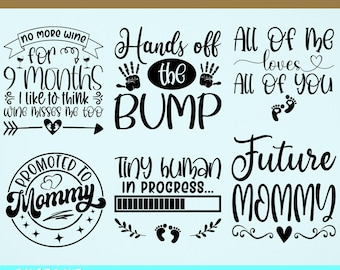 no more wine
for
9 months
I like to think
wine misses me too
Hands off
the
BUMP
All of me
loves
All of you
PROMOTED TO
Mommy
Tiny human
IN PROGRESS...
Future
MOMMY